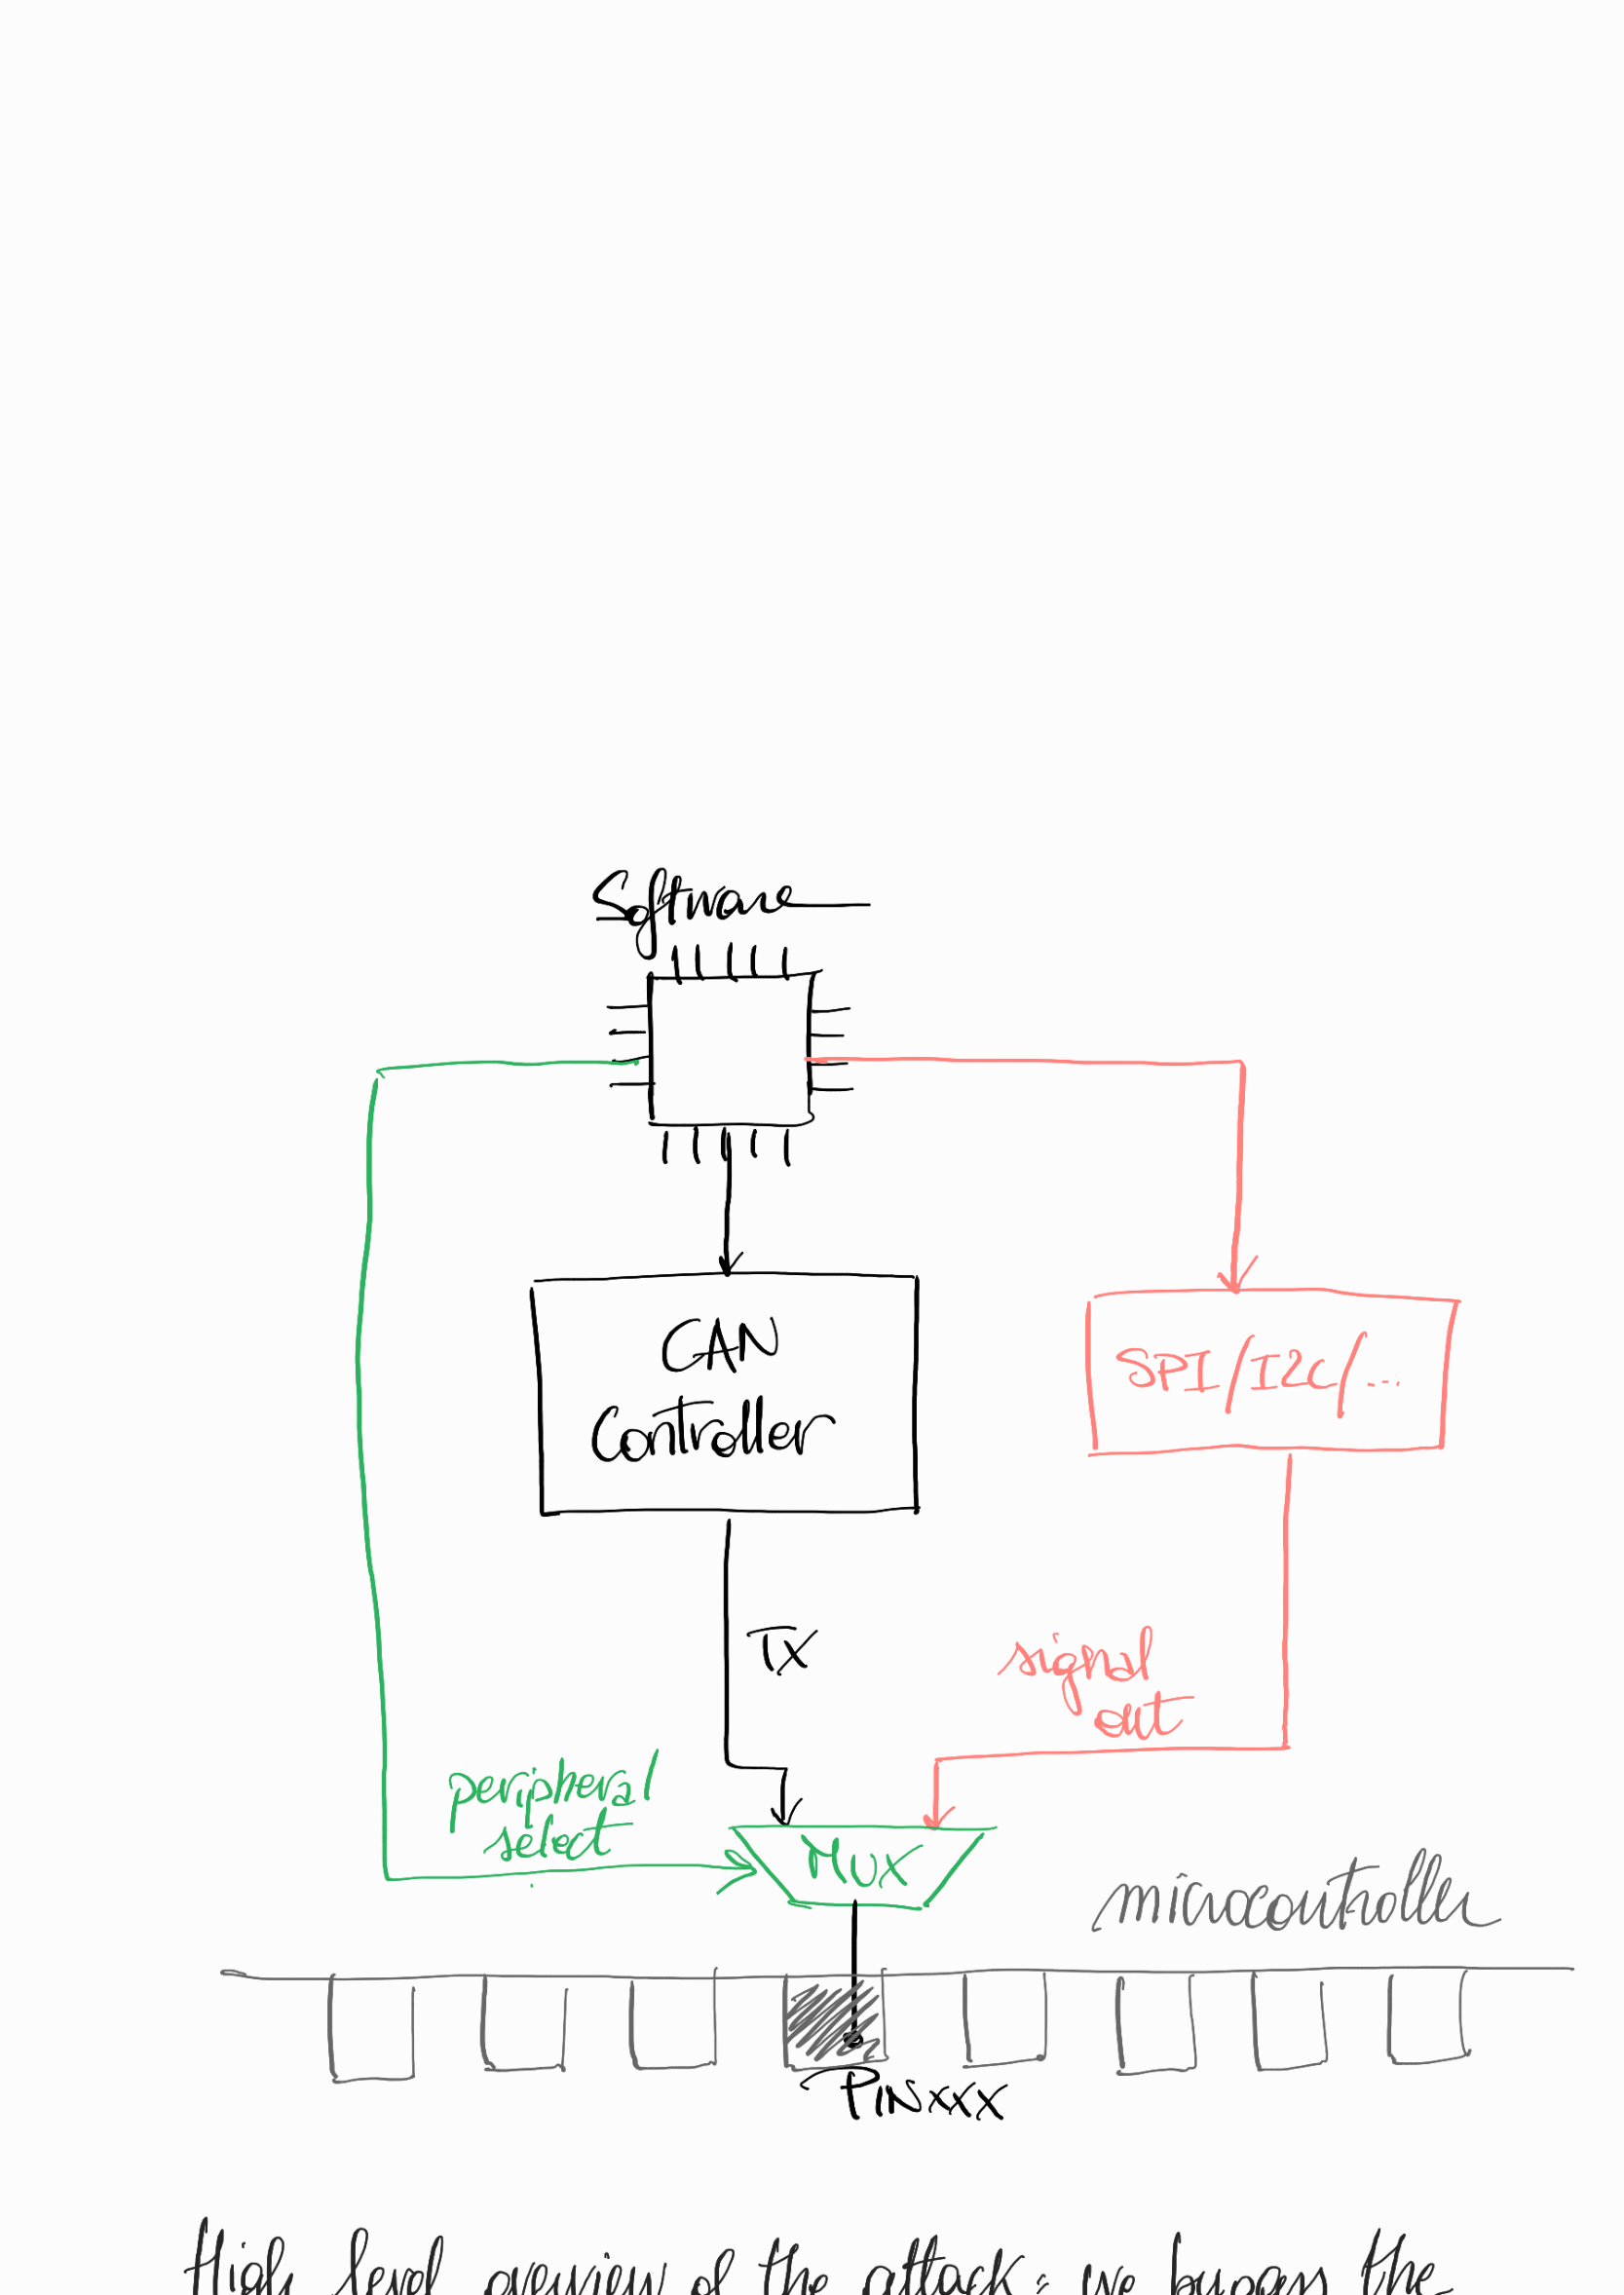 Software
CAN
Controller
SPI/I2C/...
TX
signal
out
peripheral
select
MUX
microcontroller
PINxxx
High level overview of the attack: we bypass the